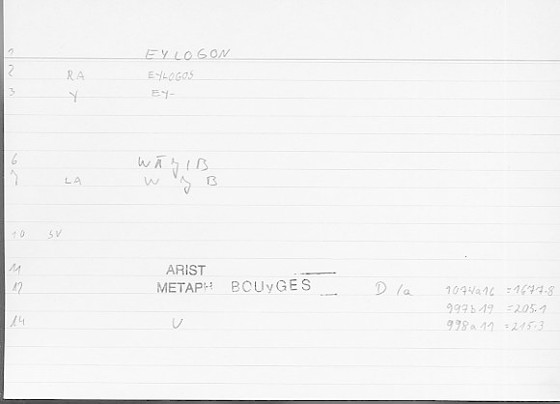 1 EYLOGON
2 RA EYLOGOS
3 Y EY-
6
7 LA W B
10 SV
11 ARIST
12 METAPH BOUyGES D 1a 1074a16 =1677.8
997b19 =205.1
998a11 =215.3
14 U